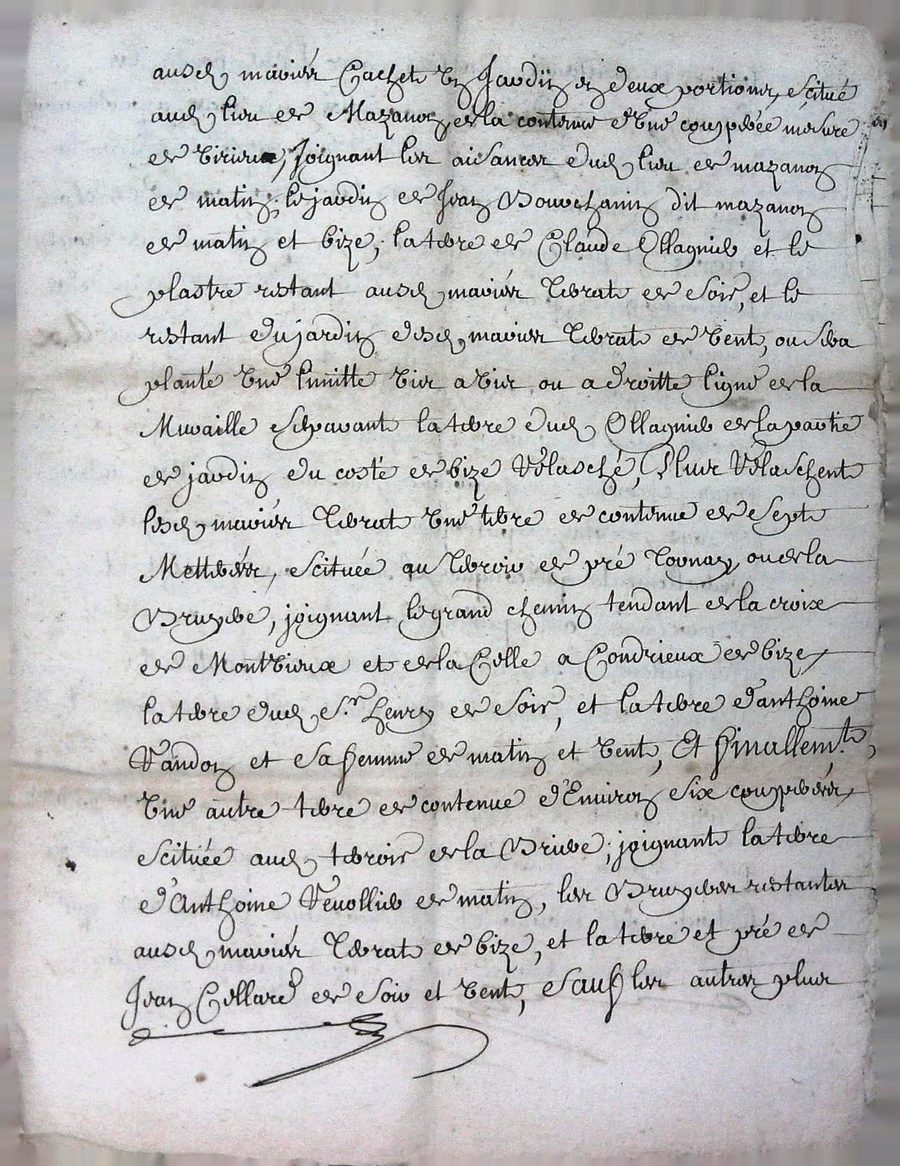 ausd. mariés Cachet un Jardin en deux portions, scitué
aud. lieu de Mazanon, de la contenue d'une couppeé mesure
de Virieux, Joignant les aisances dud. lieu de mazanon
de matin, le jardin de Jean Bouchamin dit mazanon
de matin et bize, la terre de Claude Ollagnier et le
plastre restant ausd. mariés Terrat de soir, et le
restant du jardin desd. mariés Terrat de vent, ou sera
planté une limitte vis a vis ou a droitte ligne de la
Muraille separant la terre dud. Ollagnier de la partie
de jardin du costé de bize relasché, Plus relaschent
lesd. mariés Terrat une terre de contenue de sept
Mettérés, scituée au Terroir de pré Tournay, ou de la
Bruyere, joignant le grand chemin tendant de la croix
de Montvieux et de la Celle a Condrieux de bize,
la terre dud. Sr. henry de soir, et la terre d'anthoine
Vandon et sa femme de matin et vent, Et finallem.t,
une autre terre de contenue d'Environ six couppeés,
scituée aud. terroir de la Briere, joignant la terre
d'Anthoine Revollier de matin, les Bruyeres restantes
ausd. mariés Terrat de bize, et la terre et pré de
Jean Collard de soir et vent, sauf les autres plus